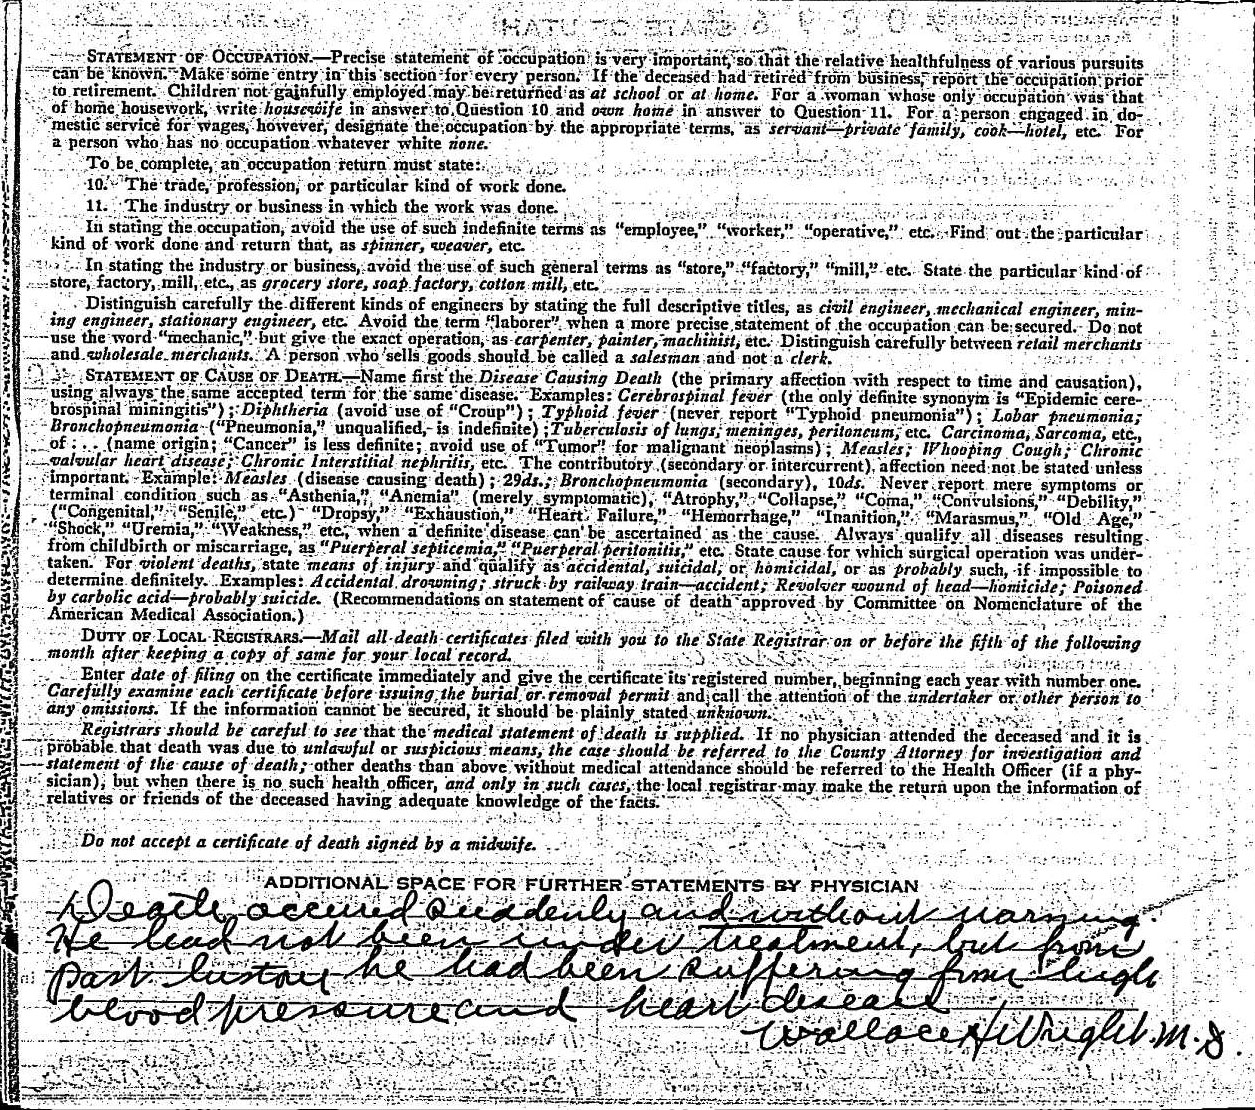 STATEMENT OF OCCUPATION.—Precise statement of occupation is very important, so that the relative healthfulness of various pursuits
can be known. Make some entry in this section for every person. If the deceased had retired from business, report the occupation prior
to retirement. Children not gainfully employed may be returned as at school or at home. For a woman whose only occupation was that
of home housework, write housewife in answer to Question 10 and own home in answer to Question 11. For a person engaged in do-
mestic service for wages, however, designate the occupation by the appropriate terms, as servant—private family, cook—hotel, etc. For
a person who has no occupation whatever white none.
To be complete, an occupation return must state:
10. The trade, profession, or particular kind of work done.
11. The industry or business in which the work was done.
In stating the occupation, avoid the use of such indefinite terms as "employee," "worker," "operative," etc. Find out the particular
kind of work done and return that, as spinner, weaver, etc.
In stating the industry or business, avoid the use of such general terms as "store," "factory," "mill," etc. State the particular kind of
store, factory, mill, etc., as grocery store, soap factory, cotton mill, etc.
Distinguish carefully the different kinds of engineers by stating the full descriptive titles, as civil engineer, mechanical engineer, min-
ing engineer, stationary engineer, etc. Avoid the term "laborer" when a more precise statement of the occupation can be secured. Do not
use the word "mechanic," but give the exact operation, as carpenter, painter, machinist, etc. Distinguish carefully between retail merchants
and wholesale merchants. A person who sells goods should be called a salesman and not a clerk.
STATEMENT OF CAUSE OF DEATH.—Name first the Disease Causing Death (the primary affection with respect to time and causation),
using always the same accepted term for the same disease. Examples: Cerebrospinal fever (the only definite synonym is "Epidemic cere-
brospinal miningitis"); Diphtheria (avoid use of "Croup"); Typhoid fever (never report "Typhoid pneumonia"); Lobar pneumonia;
Bronchopneumonia ("Pneumonia," unqualified, is indefinite); Tuberculosis of lungs, meninges, peritoneum, etc. Carcinoma, Sarcoma, etc.,
of . . . (name origin; "Cancer" is less definite; avoid use of "Tumor" for malignant neoplasms); Measles; Whooping Cough; Chronic
valvular heart disease; Chronic Interstitial nephritis, etc. The contributory (secondary or intercurrent) affection need not be stated unless
important. Example: Measles (disease causing death); 29ds.; Bronchopneumonia (secondary), 10ds. Never report mere symptoms or
terminal condition such as "Asthenia," "Anemia" (merely symptomatic), "Atrophy," "Collapse," "Coma," "Convulsions," "Debility,"
("Congenital," "Senile," etc.) "Dropsy," "Exhaustion," "Heart Failure," "Hemorrhage," "Inanition," "Marasmus," "Old Age,"
"Shock," "Uremia," "Weakness," etc., when a definite disease can be ascertained as the cause. Always qualify all diseases resulting
from childbirth or miscarriage, as "Puerperal septicemia," "Puerperal peritonitis," etc. State cause for which surgical operation was under-
taken. For violent deaths, state means of injury and qualify as accidental, suicidal, or homicidal, or as probably such, if impossible to
determine definitely. Examples: Accidental drowning; struck by railway train—accident; Revolver wound of head—homicide; Poisoned
by carbolic acid—probably suicide. (Recommendations on statement of cause of death approved by Committee on Nomenclature of the
American Medical Association.)
DUTY OF LOCAL REGISTRARS.—Mail all death certificates filed with you to the State Registrar on or before the fifth of the following
month after keeping a copy of same for your local record.
Enter date of filing on the certificate immediately and give the certificate its registered number, beginning each year with number one.
Carefully examine each certificate before issuing the burial or removal permit and call the attention of the undertaker or other person to
any omissions. If the information cannot be secured, it should be plainly stated unknown.
Registrars should be careful to see that the medical statement of death is supplied. If no physician attended the deceased and it is
probable that death was due to unlawful or suspicious means, the case should be referred to the County Attorney for investigation and
statement of the cause of death; other deaths than above without medical attendance should be referred to the Health Officer (if a phy-
sician), but when there is no such health officer, and only in such cases, the local registrar may make the return upon the information of
relatives or friends of the deceased having adequate knowledge of the facts.
Do not accept a certificate of death signed by a midwife.
ADDITIONAL SPACE FOR FURTHER STATEMENTS BY PHYSICIAN
Death occured suddenly and without warning.
He had not been under treatment, but from
past history he had been suffering from high
blood pressure and heart disease
Wallace H Wright. M.D.